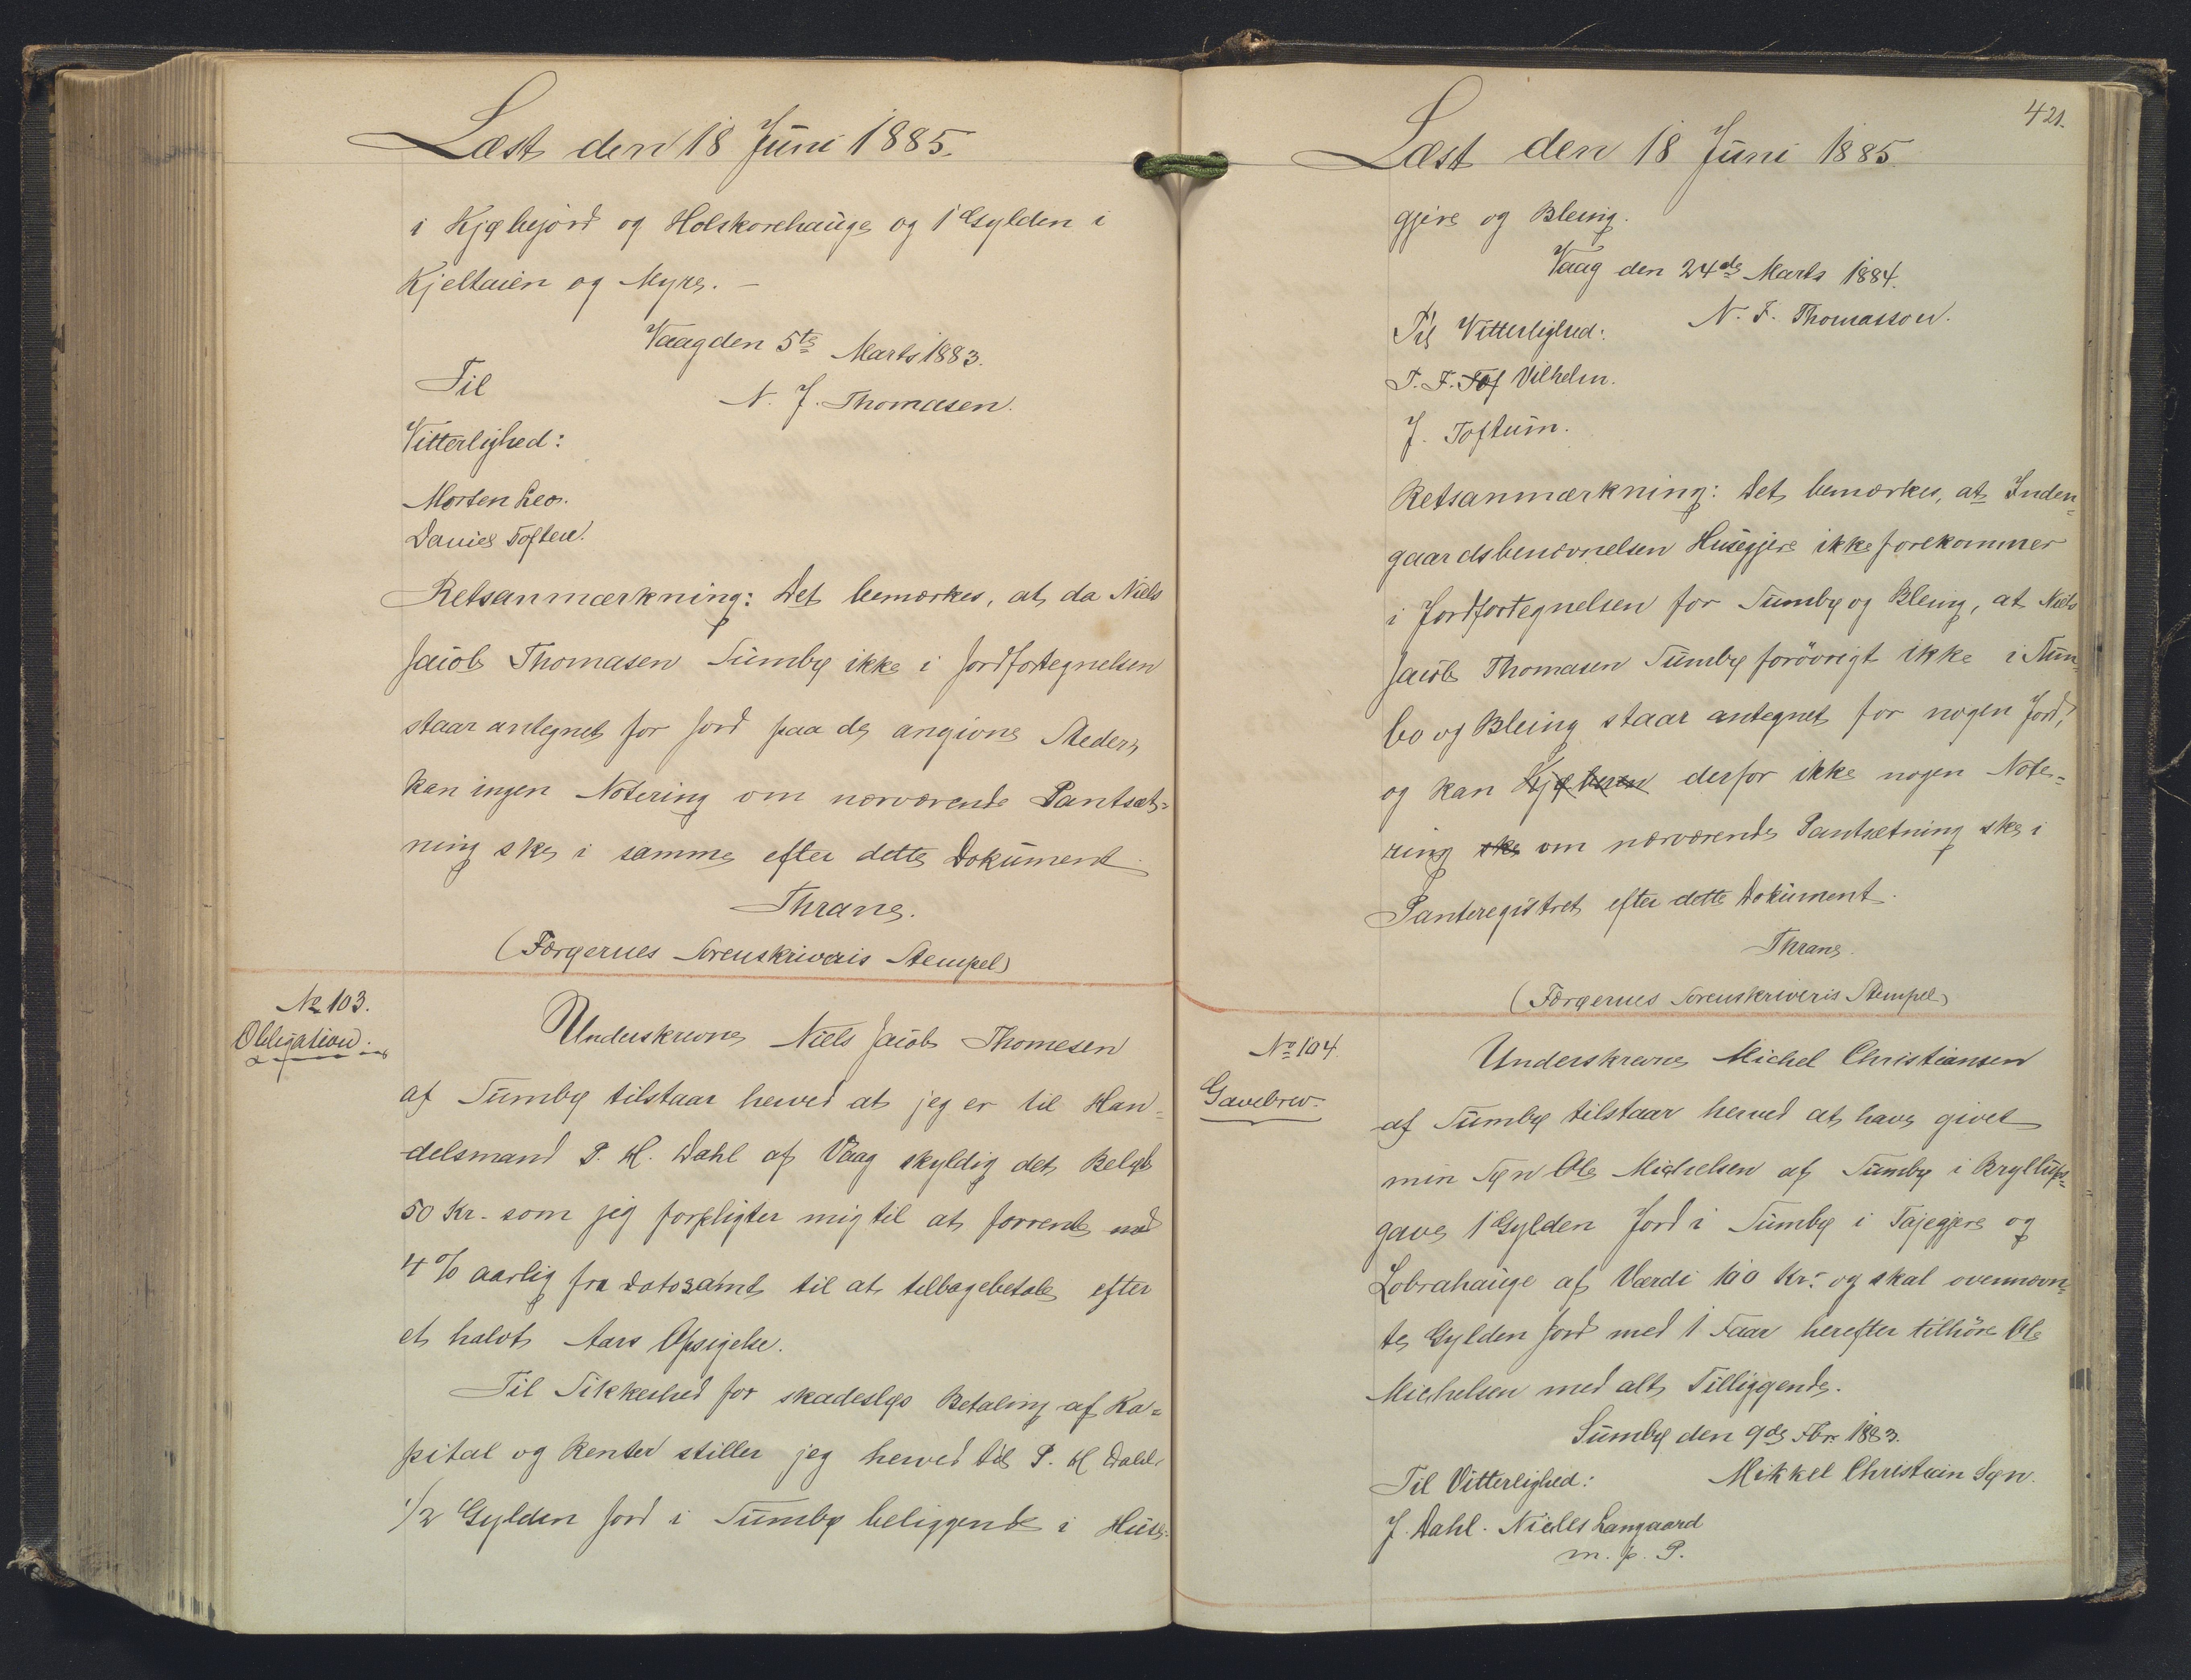 Læst den 18 Juni 1885.
i Kjøbejord og Holskorehauge og 1 Gylden i
Kjeltaien og Myre. –
Vaag den 5te Marts 1883.
Til
N. J. Thomasen.
Vitterlighed:
Morten Leo.
Daniel Toften.
Retsanmærkning: Det bemærkes, at da Niels
Jacob Thomasen Sumbø ikke i Jordfortegnelsen
staar antegnet for Jord paa de angivne Steder,
kan ingen Notering om nærværende Pantsæt=
ning ske i samme efter dette Dokument.
Thrane.
(Færøernes Sorenskriveris Stempel)
No 103.
Obligation.
Underskrevne Niels Jacob Thomesen
af Sumbø tilstaar herved at jeg er til Han=
delsmand P. H. Dahl af Vaag skyldig det Beløb
50 Kr. som jeg forpligter mig til at forrente med
4% aarlig fra dato samt til at tilbagebetale efter
et halvt Aars Opsigelse.
Til Sikkerhed for skadesløs Betaling af Ka=
pital og Renter stiller jeg herved til P. H Dahl
1/2 Gylden Jord i Sumbø beliggende i Huse=
421.
Læst den 18 Juni 1885
gjere og Bleing.
Vaag den 24de Marts 1884.
Til Vitterlighed:
N. J. Thomasson.
T. F. Tof Vilhelm.
J. Toftum.
Retsanmærkning: Det bemærkes, at Inden=
gaardsbenævnelsen Husegjere ikke forekommer
i Jordfortegnelsen for Sumbø og Bleing, at Niels
Jacob Thomasen Sumbø forövrigt ikke i Sum=
bø og Bleing staar antegnet for nogen Jord,
og kan Kjøberen derfor ikke nogen Note=
ring ske om nærværende Pantsætning ske i
Panteregistret efter dette Dokument.
Thrane.
(Færøernes Sorenskriveris Stempel)
No 104.
Gavebrev.
Underskrevne Michel Christiansen
af Sumbø tilstaar herved at have givet
min Søn Ole Michelsen af Sumbø i Bryllups=
gave 1 Gylden Jord i Sumbø i Tajegjere og
Lobrahauge af Værdi 100 Kr. og skal ovennævn=
te Gylden Jord med 1 Faar herefter tilhöre Ole
Michelsen med alt Tilliggende.
Sumbø den 9de Fbr. 1883.
Til Vitterlighed:
Mikkel Christian Søn.
J. Dahl. Nicles Langaard
m. p. P.